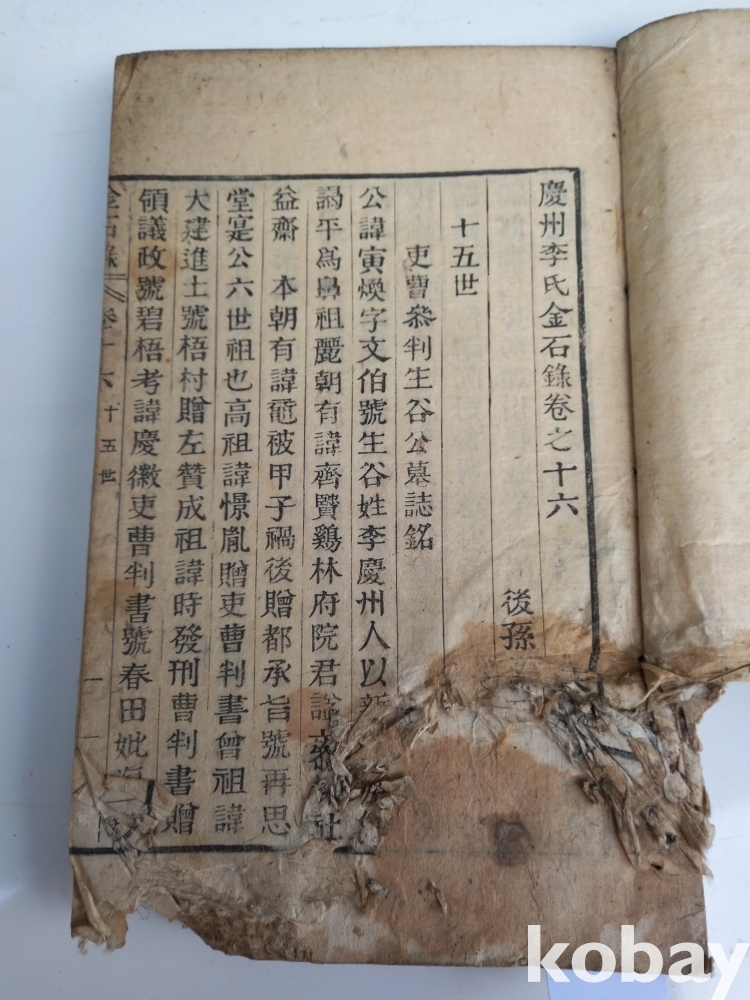 慶州李氏金石錄卷之十六
後孫
十五世
吏曹叅判生谷公墓誌銘
公諱寅煥字文伯號生谷姓李慶州人以新
謁平爲鼻祖麗朝有諱齊賢鷄林府院君謚 社
益齋 本朝有諱黿被甲子禍後贈都承旨號再思
堂寔公六世祖也高祖諱憬胤贈吏曹判書曾祖諱
大建進士號梧村贈左贊成祖諱時發刑曹判書贈
領議政號碧梧考諱慶徽吏曹判書號春田妣
金石錄 卷十六 十五世 一
kobay